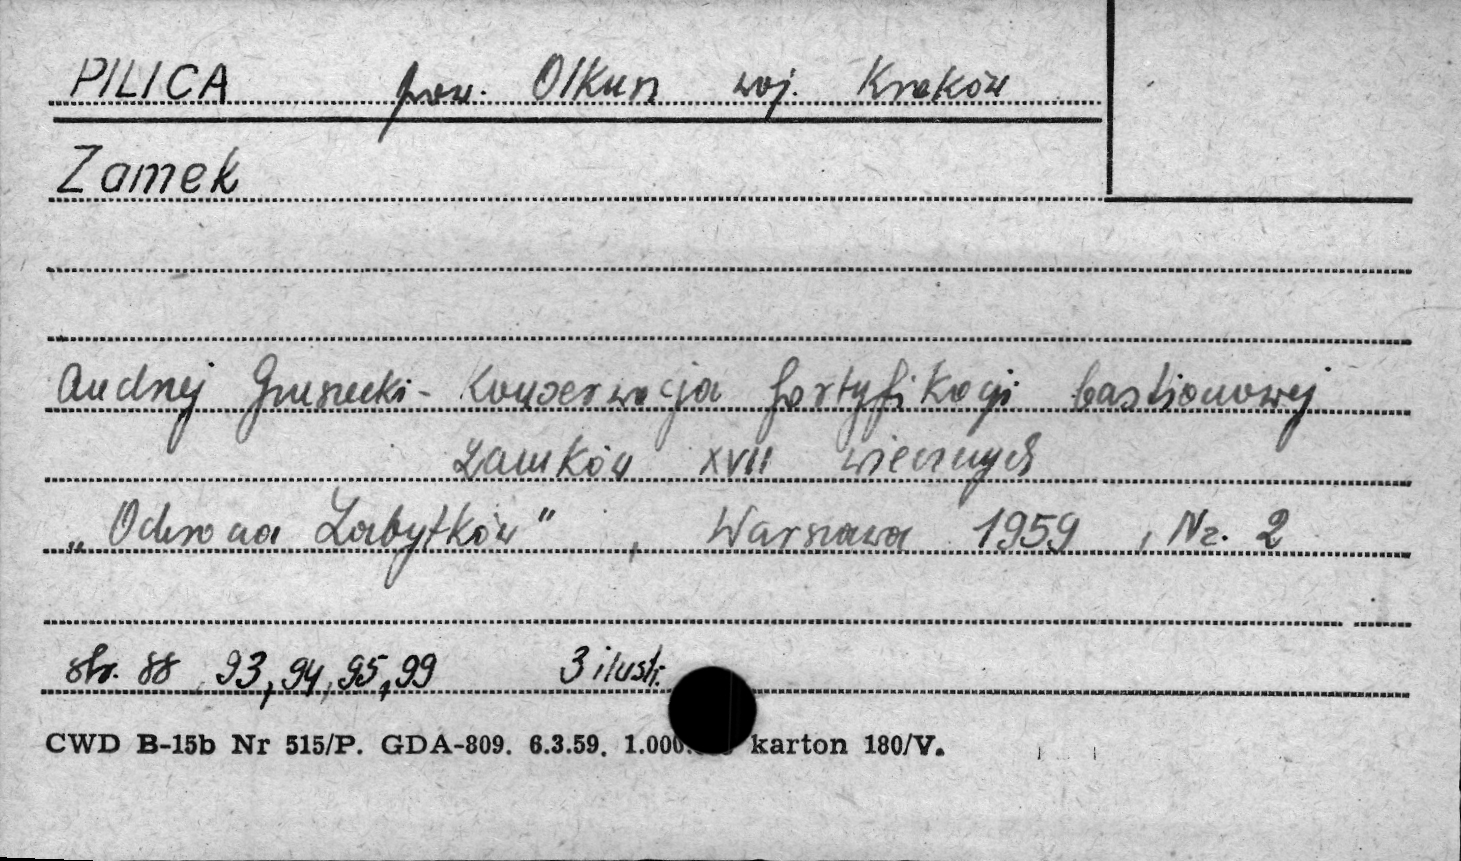 PILICA pow. Olkusz woj. Kraków
Zamek
Andrzej Gruszecki - Konserwacja fortyfikacji bastionowej
zamków XVII wiecznych
„Ochrona Zabytków", Warszawa 1959, Nr. 2
str. 88, 93, 94, 95, 99 3 ilustr.
CWD B-15b Nr 515/P. GDA-809. 6.3.59. 1.000. karton 180/V.